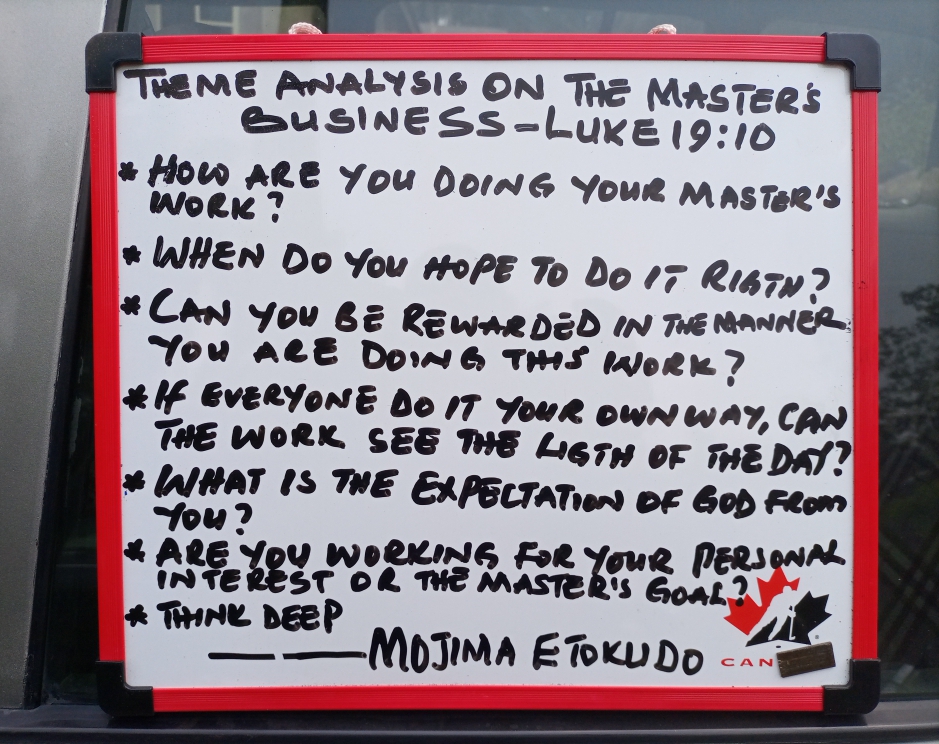 THEME ANALYSIS ON THE MASTER'S
BUSINESS - LUKE 19:10
* HOW ARE YOU DOING YOUR MASTER'S
WORK?
* WHEN DO YOU HOPE TO DO IT RIGTH?
* CAN YOU BE REWARDED IN THE MANNER
YOU ARE DOING THIS WORK?
* IF EVERYONE DO IT YOUR OWN WAY, CAN
THE WORK SEE THE LIGTH OF THE DAY?
* WHAT IS THE EXPECTATION OF GOD FROM
YOU?
* ARE YOU WORKING FOR YOUR PERSONAL
INTEREST OR THE MASTER'S GOAL?
* THINK DEEP
—— MOJIMA ETOKUDO
CAN